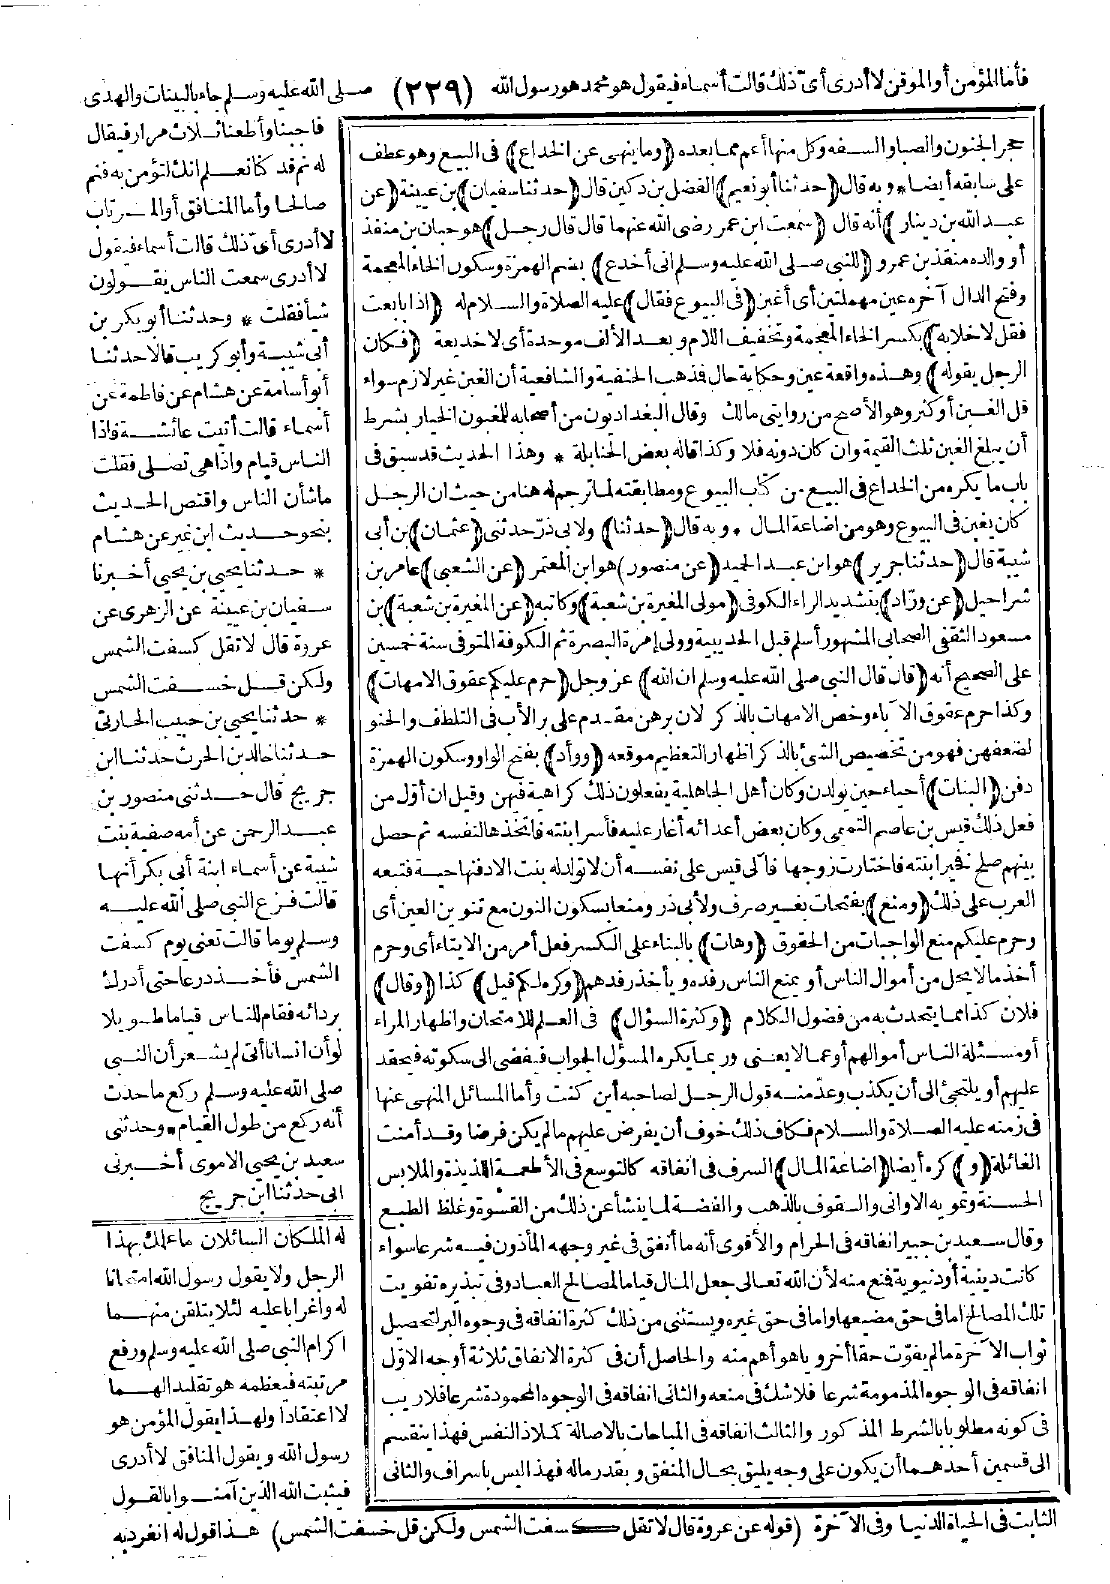 فأما المؤمن أو الموقن لا أدرى أىّ ذلك قالت أسماء فيقول هو محمد هو رسول الله (٢٢٩) صلى الله عليه وسلم جاء بالبينات والهدى
حجر الجنون والصبا والسفه وكل منها أعم مما بعده (وما ينهى عن الخداع) فى البيع وهو عطف
على سابقه أيضا * وبه قال (حدثنا أبو نعيم) الفضل بن دكين قال (حدثنا سفيان) بن عيينة (عن
عبد الله بن دينار) أنه قال (سمعت ابن عمر رضى الله عنهما قال قال رجل) هو حبان بن منقذ
أو والده منقذ بن عمرو (للنبى صلى الله عليه وسلم انى أخدع) بضم الهمزة وسكون الخاء المعجمة
وفتح الدال آخره عين مهملتين أى أغبن (فى البيوع فقال) عليه الصلاة والسلام له (اذا بايعت
فقل لاخلابه) بكسر الخاء المعجمة وتخفيف اللام وبعد الألف موحدة أى لاخديعة (فكان
الرجل يقوله) وهذه واقعة عين وحكاية حال فذهب الحنفية والشافعية أن الغبن غير لازم سواء
قل الغبن أو كثر وهو الأصح من روايتى مالك وقال البغداديون من أصحابه للمغبون الخيار بشرط
أن يبلغ الغبن ثلث القيمة وان كان دونه فلا وكذا قاله بعض الحنابلة * وهذا الحديث قد سبق فى
باب ما يكره من الخداع فى البيع من كتاب البيوع ومطابقته لما ترجم له هنا من حيث ان الرجل
كان يغبن فى البيوع وهو من اضاعة المال * وبه قال (حدثنا) ولابى ذرّ حدثنى (عثمان) بن أبى
شيبة قال (حدثنا جرير) هو ابن عبد الحميد (عن منصور) هو ابن المعتمر (عن الشعبى) عامر بن
شراحيل (عن ورّاد) بتشديد الراء الكوفى (مولى المغيرة بن شعبة) وكاتبه (عن المغيرة بن شعبة) بن
مسعود الثقفى الصحابى المشهور أسلم قبل الحديبية وولى إمرة البصرة ثم الكوفة المتوفى سنة خمسين
على الصحيح أنه (قال قال النبى صلى الله عليه وسلم ان الله) عز وجل (حرم عليكم عقوق الامهات)
وكذا حرم عقوق الآباء وخص الامهات بالذكر لان برهن مقدم على بر الأب فى التلطف والحنو
لضعفهن فهو من تخصيص الشئ بالذكر اظهار التعظيم موقعه (ووأد) بفتح الواو وسكون الهمزة
دفن (البنات) أحياء حين يولدن وكان أهل الجاهلية يفعلون ذلك كراهة فيهن وقيل ان أول من
فعل ذلك قيس بن عاصم التميمى وكان بعض أعدائه أغار عليه فأسر ابنته فاتخذها لنفسه ثم حصل
بينهم صلح فخير ابنته فاختارت زوجها فآلى قيس على نفسه أن لا تولد له بنت الادفنها حية فتبعه
العرب على ذلك (ومنع) بفتحات بغير صرف ولأبى ذر ومنعا بسكون النون مع تنوين العين أى
وحرم عليكم منع الواجبات من الحقوق (وهات) بالبناء على الكسر فعل أمر من الايتاء أى وحرم
أخذ ما لا يحل من أموال الناس أو يمنع الناس رفده ويأخذ رفدهم (وكره لكم قيل) كذا (وقال)
فلان كذا مما يتحدث به من فضول الكلام (وكثرة السؤال) فى العلم للامتحان واظهار المراء
أو مسئلة الناس أموالهم أو عما لا يعنى وربما يكره المسؤل الجواب فيفضى الى سكوته فيحقد
عليهم أو يلتجئ الى أن يكذب وعد منه قول الرجل لصاحبه أين كنت وأما المسائل المنهى عنها
فى زمنه عليه الصلاة والسلام فكاف ذلك خوف أن يفرض عليهم ما لم يكن فرضا وقد أمنت
الغائلة (و) كره أيضا (اضاعة المال) السرف فى انفاقه كالتوسع فى الأطعمة اللذيذة والملابس
الحسنة وتمويه الاوانى والسقوف بالذهب والفضة لما ينشأ عن ذلك من القسوة وغلظ الطبع
وقال سعيد بن جبير انفاقه فى الحرام والأقوى أنه ما أنفق فى غير وجهه المأذون فيه شرعا سواء
كانت دينية أو دنيوية فمنع منه لأن الله تعالى جعل المال قياما لمصالح العباد وفى تبذيره تفويت
تلك المصالح اما فى حق مضيعها واما فى حق غيره ويستثنى من ذلك كثرة انفاقه فى وجوه البر لتحصيل
ثواب الآخرة ما لم يفوّت حقا أخرويا هو أهم منه والحاصل أن فى كثرة الانفاق ثلاثة أوجه الاوّل
انفاقه فى الوجوه المذمومة شرعا فلا شك فى منعه والثانى انفاقه فى الوجوه المحمودة شرعا فلا ريب
فى كونه مطلوبا بالشرط المذكور والثالث انفاقه فى المباحات بالاصالة كملاذ النفس فهذا ينقسم
الى قسمين أحدهما أن يكون على وجه يليق بحال المنفق وبقدر ماله فهذا ليس باسراف والثانى
فاجبنا وأطعنا ثلاث مرار فيقال
له نم قد كنا نعلم انك لتؤمن به فنم
صالحا وأما المنافق أو المرتاب
لا أدرى أىّ ذلك قالت أسماء فيقول
لا أدرى سمعت الناس يقولون
شيأ فقلت * وحدثنا أبو بكر بن
أبى شيبة وأبو كريب قالا حدثنا
أبو أسامة عن هشام عن فاطمة عن
أسماء قالت أتيت عائشة فاذا
الناس قيام واذا هى تصلى فقلت
ما شأن الناس واقتص الحديث
بنحو حديث ابن نمير عن هشام
* حدثنا يحيى بن يحيى أخبرنا
سفيان بن عيينة عن الزهرى عن
عروة قال لا تقل كسفت الشمس
ولكن قل خسفت الشمس
* حدثنا يحيى بن حبيب الحارثى
حدثنا خالد بن الحرث حدثنا ابن
جريج قال حدثنى منصور بن
عبد الرحمن عن أمه صفية بنت
شيبة عن أسماء ابنة أبى بكر أنها
قالت فزع النبى صلى الله عليه
وسلم يوما قالت تعنى يوم كسفت
الشمس فأخذ درعا حتى أدرك
بردائه فقام للناس قياما طويلا
لو أن انسانا أتى لم يشعر أن النبى
صلى الله عليه وسلم ركع ما حدث
أنه ركع من طول القيام * وحدثنى
سعيد بن يحيى الاموى أخبرنى
أبى حدثنا ابن جريج
له الملكان السائلان ما علمك بهذا
الرجل ولا يقول رسول الله امتحانا
له واغرابا عليه لئلا يتلقن منهما
اكرام النبى صلى الله عليه وسلم ورفع
مرتبته فيعظمه هو تقليدا لهما
لا اعتقادا ولهذا يقول المؤمن هو
رسول الله ويقول المنافق لا أدرى
فيثبت الله الذين آمنوا بالقول
الثابت فى الحياة الدنيا وفى الآخرة (قوله عن عروة قال لا تقل كسفت الشمس ولكن قل خسفت الشمس) هذا قول له انفرد به